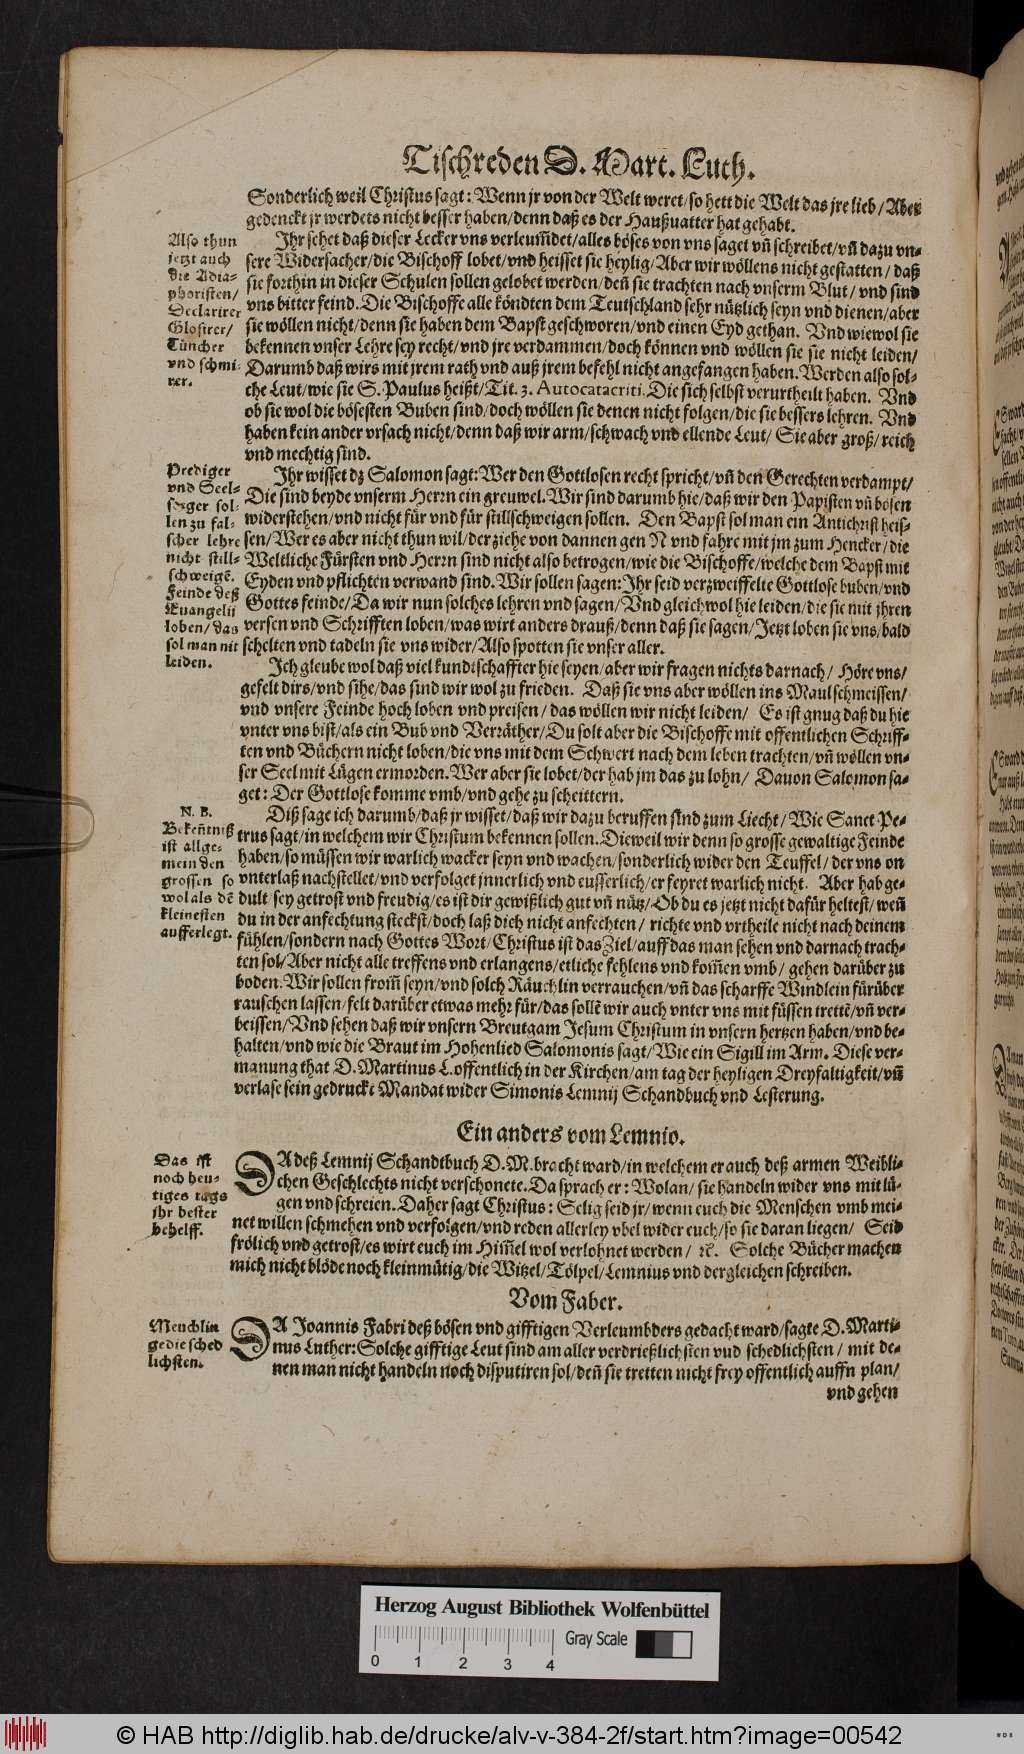 Tischreden D. Mart. Luth.
Sonderlich weil Christus sagt: Wenn jr von der Welt weret/ so hett die Welt das jre lieb/ Aber
gedenckt jr werdets nicht besser haben/ denn daß es der Haußuatter hat gehabt.
Ihr sehet daß dieser Lecker vns verleum̃det/ alles böses von vns saget vñ schreibet/ vñ dazu vn-
sere Widersacher/ die Bischoff lobet/ vnd heisset sie heylig/ Aber wir wöllens nicht gestatten/ daß
sie forthin in dieser Schulen sollen gelobet werden/ deñ sie trachten nach vnserm Blut/ vnd sind
vns bitter feind. Die Bischoffe alle köndten dem Teutschland sehr nützlich seyn vnd dienen/ aber
sie wöllen nicht/ denn sie haben dem Bapst geschworen/ vnd einen Eyd gethan. Vnd wiewol sie
bekennen vnser Lehre sey recht/ vnd jre verdammen/ doch können vnd wöllen sie sie nicht leiden/
Darumb daß wirs mit jrem rath vnd auß jrem befehl nicht angefangen haben. Werden also sol-
che Leut/ wie sie S. Paulus heißt/ Tit. 3. Autocatacriti. Die sich selbst verurtheilt haben. Vnd
ob sie wol die bösesten Buben sind/ doch wöllen sie denen nicht folgen/ die sie bessers lehren. Vnd
haben kein ander vrsach nicht/ denn daß wir arm/ schwach vnd ellende Leut/ Sie aber groß/ reich
vnd mechtig sind.
Also thun
jetzt auch
die Adia-
phoristen/
Declarirer
Glosirer/
Tüncher
vnd schmi-
rer.
Ihr wisset dz Salomon sagt: Wer den Gottlosen recht spricht/ vñ den Gerechten verdampt/
Die sind beyde vnserm Herrn ein greuwel. Wir sind darumb hie/ daß wir den Papisten vñ bösen
widerstehen/ vnd nicht für vnd für stillschweigen sollen. Den Bapst sol man ein Antichrist heis-
sen/ Wer es aber nicht thun wil/ der ziehe von dannen gen N vnd fahre mit jm zum Hencker/ die
Weltliche Fürsten vnd Herrn sind nicht also betrogen/ wie die Bischoffe/ welche dem Bapst mit
Eyden vnd pflichten verwand sind. Wir sollen sagen: Ihr seid verzweiffelte Gottlose buben/ vnd
Gottes feinde/ Da wir nun solches lehren vnd sagen/ Vnd gleichwol hie leiden/ die sie mit jhren
versen vnd Schrifften loben/ was wirt anders drauß/ denn daß sie sagen/ Jetzt loben sie vns/ bald
schelten vnd tadeln sie vns wider/ Also spotten sie vnser aller.
Prediger
vnd Seel-
sorger sol-
len zu fal-
scher lehre
nicht still-
schweigẽ.
Feinde deß
Euangelii
loben/ das
sol man nit
leiden.
Ich gleube wol daß viel kundtschaffter hie seyen/ aber wir fragen nichts darnach/ Höre vns/
gefelt dirs/ vnd sihe/ das sind wir wol zu frieden. Daß sie vns aber wöllen ins Maul schmeissen/
vnd vnsere Feinde hoch loben vnd preisen/ das wöllen wir nicht leiden/ Es ist gnug daß du hie
vnter vns bist/ als ein Bub vnd Verräther/ Du solt aber die Bischoffe mit offentlichen Schriff-
ten vnd Büchern nicht loben/ die vns mit dem Schwert nach dem leben trachten/ vñ wöllen vn-
ser Seel mit Lügen ermorden. Wer aber sie lobet/ der hab jm das zu lohn/ Dauon Salomon sa-
get: Der Gottlose komme vmb/ vnd gehe zu scheittern.
Diß sage ich darumb/ daß jr wisset/ daß wir dazu beruffen sind zum Liecht/ Wie Sanct Pe-
trus sagt/ in welchem wir Christum bekennen sollen. Dieweil wir denn so grosse gewaltige Feinde
haben/ so müssen wir warlich wacker seyn vnd wachen/ sonderlich wider den Teuffel/ der vns on
vnterlaß nachstellet/ vnd verfolget jnnerlich vnd eusserlich/ er feyret warlich nicht. Aber hab ge-
dult/ sey getrost vnd freudig/ es ist dir gewißlich gut vñ nütz/ Ob du es jetzt nicht dafür heltest/ weñ
du in der anfechtung steckst/ doch laß dich nicht anfechten/ richte vnd vrtheile nicht nach deinem
fühlen/ sondern nach Gottes Wort/ Christus ist das Ziel/ auff das man sehen vnd darnach trach-
ten sol/ Aber nicht alle treffens vnd erlangens/ etliche fehlens vnd kom̃en vmb/ gehen darüber zu
boden. Wir sollen from̃ seyn/ vnd solch Räuchlin verrauchen/ vñ das scharffe Windlein fürüber
rauschen lassen/ felt darüber etwas mehr für/ das sollẽ wir auch vnter vns mit füssen trettẽ/ vñ ver-
beissen/ Vnd sehen daß wir vnsern Breutgam Jesum Christum in vnsern hertzen haben/ vnd be-
halten/ vnd wie die Braut im Hohenlied Salomonis sagt/ Wie ein Sigill im Arm. Diese ver-
manung that D. Martinus L. offentlich in der Kirchen/ am tag der heyligen Dreyfaltigkeit/ vñ
verlase sein gedruckt Mandat wider Simonis Lemnij Schandbuch vnd Lesterung.
N. B.
Bekeñtniß
ist allge-
mein den
grossen so
wol als dẽ
kleinesten
aufferlegt.
Ein anders vom Lemnio.
DA deß Lemnij Schandtbuch D. M. bracht ward/ in welchem er auch deß armen Weibli-
chen Geschlechts nicht verschonete. Da sprach er: Wolan/ sie handeln wider vns mit lü-
gen vnd schreien. Daher sagt Christus: Selig seid jr/ wenn euch die Menschen vmb mei-
net willen schmehen vnd verfolgen/ vnd reden allerley vbel wider euch/ so sie daran liegen/ Seid
frölich vnd getrost/ es wirt euch im Him̃el wol verlohnet werden/ ꝛc. Solche Bücher machen
mich nicht blöde noch kleinmütig/ die Witzel/ Tölpel/ Lemnius vnd dergleichen schreiben.
Das ist
noch heu-
tiges tags
jhr bester
behelff.
Vom Faber.
DA Joannis Fabri deß bösen vnd gifftigen Verleumbders gedacht ward/ sagte D. Marti-
nus Luther: Solche gifftige Leut sind am aller verdrießlichsten vud schedlichsten/ mit de-
nen man nicht handeln noch disputiren sol/ deñ sie tretten nicht frey offentlich auffn plan/
vnd gehen
Meuchlin
ge die sched
lichsten.
Herzog August Bibliothek Wolfenbüttel
Gray Scale
0 1 2 3 4
© HAB http://diglib.hab.de/drucke/alv-v-384-2f/start.htm?image=00542